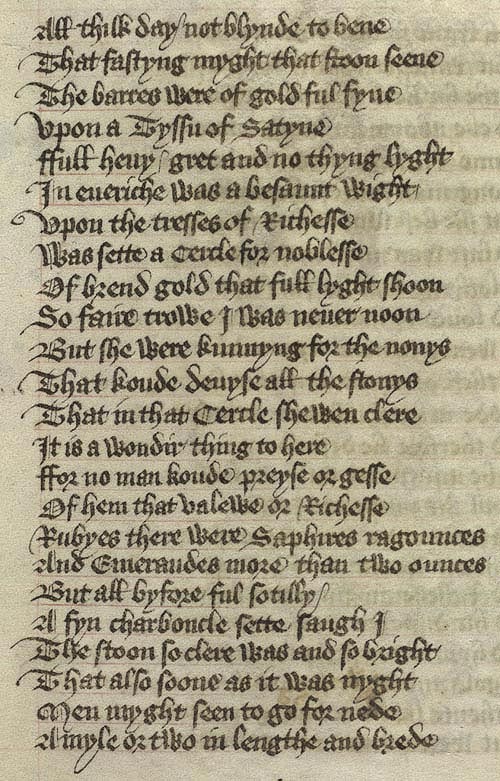 All thilk day / not blynde to bene
That fastyng myght that stoon seene
The barres were of gold ful fyne
Vpon a Tyssu of Satyne
ffull heuy / gret and no thyng lyght
In eueriche was a besaunt wight
Vpon the tresses of Richesse
Was sette a Cercle for noblesse
Of brend gold that full lyght shoon
So faire trowe I was neuer noon
But she were kunnyng for the nonys
That koude deuyse all the stonys
That in that Cercle shewen clere
It is a wondir thing to here
ffor no man koude preyse or gesse
Of hem that valewe or Richesse
Rubyes there were Saphires ragounces
And Emeraudes more than two ounces
But all byfore ful sotilly /
A fyn charboncle sette saugh I
The stoon so clere was and so bright
That also soone as it was nyght
Men myght seen to go for nede
A myle or two in lengthe and brede